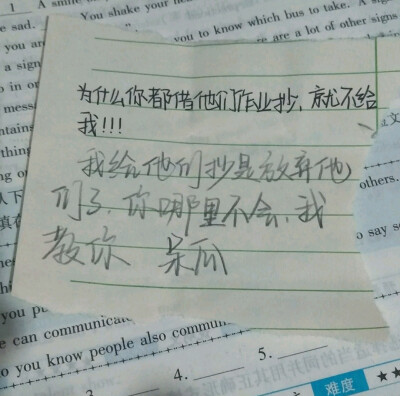 1 A smile
e sad.
You shake your he
to know which bus to take. A
are a lot of other signs
you ar
a sign
为什么你都借他们作业抄，就不给
我!!!
我给他们抄是放弃他
们了，你哪里不会，我
教你 呆瓜
others.
say so
you pu
e can communicat
o you know people also commun
4.
5.
难度 ★★